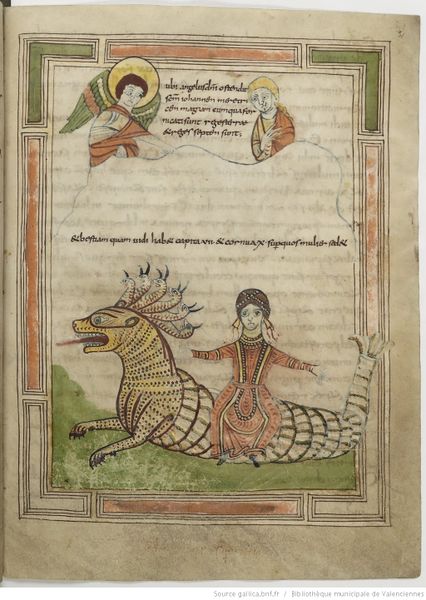 ubi angelus dni ostendit
scm iohannem meretri
cem magnam cumqua for
nicati sunt reges terrae
& reges septem sunt;
& bestiam quam uidi hab& capita uii & cornua x sup quos mulier sed&
Source gallica.bnf.fr / Bibliothèque municipale de Valenciennes